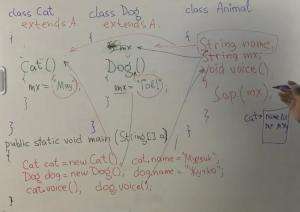 class Cat class Dog class Animal
extends A. extends A.
{ { {
mx String name,
String mx;
Cat() Dog() void voice()
{ { {
mx= mx= Sop(mx)
} } }
cat
} } }
public static void main (String[] a)
{
Cat cat = new Cat(); cat.name =
Dog dog = new Dog(); dog.name =
cat.voice(); dog.voice();
}